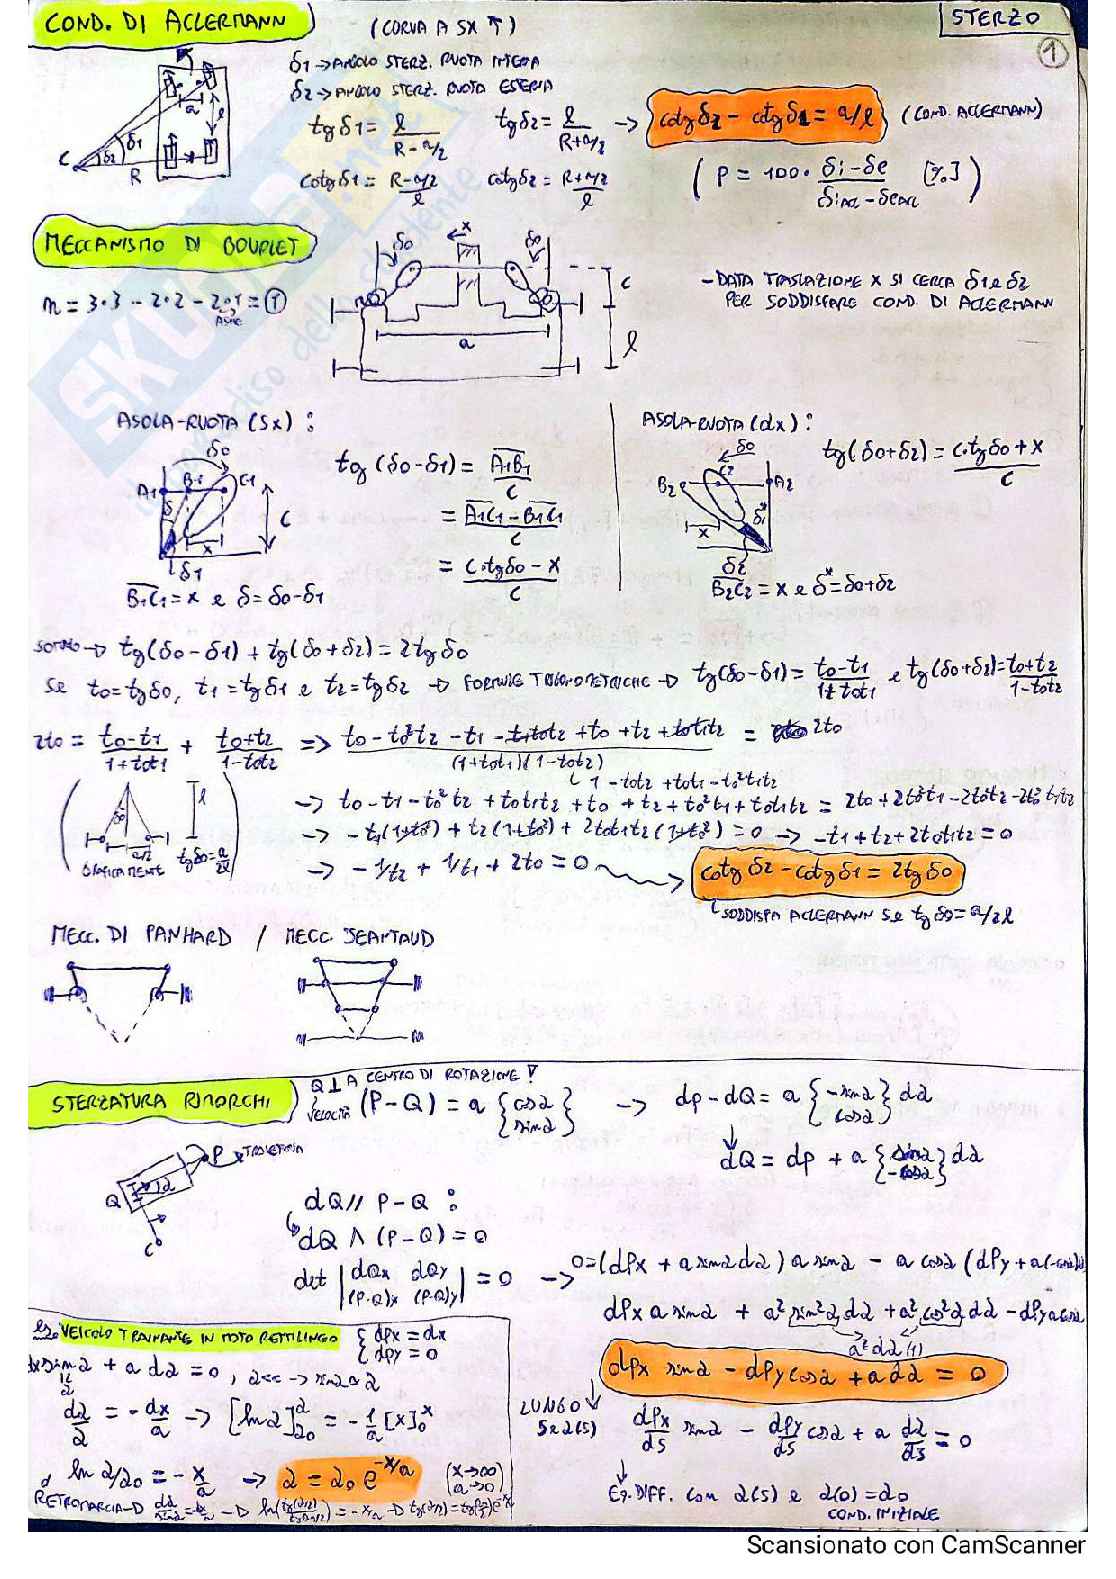 COND. DI ACKERMANN
(CURVA A SX ↰)
STERZO
1
δ1 → ANGOLO STERZ. RUOTA INTERNA
δ2 → ANGOLO STERZ. RUOTA ESTERNA
tg δ1 = l/(R-a/2)  tg δ2 = l/(R+a/2) → cotg δ2 - cotg δ1 = a/l (COND. ACKERMANN)
cotg δ1 = (R-a/2)/l  cotg δ2 = (R+a/2)/l
(P = 100 · (δi - δe)/(δiAC - δeAC) [%])
C δ2 δ1 R a l
MECCANISMO DI BOURLET
n = 3·3 - 2·2 - 2·1 = 1
ASOLE
δ0 x δ0 c a l
- DATA TRASLAZIONE X SI CERCA δ1 e δ2
PER SODDISFARE COND. DI ACKERMANN
ASOLA-RUOTA (SX):
δ0
A1 B1 C1
δ c x
δ1
B1C1 = x e δ = δ0 - δ1
tg(δ0 - δ1) = A1B1/c
= (A1C1 - B1C1)/c
= (c·tgδ0 - x)/c
ASOLA-RUOTA (dx):
δ0
B2 C2 A2
x δ*
δ2
B2C2 = x e δ* = δ0 + δ2
tg(δ0 + δ2) = (c·tgδ0 + x)/c
SOMMO → tg(δ0 - δ1) + tg(δ0 + δ2) = 2tg δ0
Se t0 = tg δ0, t1 = tg δ1 e t2 = tg δ2 → FORMULE TRIGONOMETRICHE → tg(δ0 - δ1) = (t0 - t1)/(1 + t0t1) e tg(δ0 + δ2) = (t0 + t2)/(1 - t0t2)
2t0 = (t0 - t1)/(1 + t0t1) + (t0 + t2)/(1 - t0t2) => (t0 - t0²t2 - t1 + t1t0t2 + t0 + t2 + t0t1t2)/((1 + t0t1)(1 - t0t2)) = 2t0
1 - t0t2 + t0t1 - t0²t1t2
→ t0 - t1 - t0²t2 + t0t1t2 + t0 + t2 + t0²t1 + t0t1t2 = 2t0 + 2t0²t1 - 2t0²t2 - 2t0³t1t2
→ -t1(1+t0²) + t2(1+t0²) + 2t0t1t2(1+t0²) = 0 → -t1 + t2 + 2t0t1t2 = 0
→ -1/t2 + 1/t1 + 2t0 = 0
cotg δ2 - cotg δ1 = 2tg δ0
SODDISFA ACKERMANN se tg δ0 = a/2l
δ0 a/2 l
GRAFICAMENTE tg δ0 = a/2l
MECC. DI PANHARD / MECC. JEANTAUD
STERZATURA RIMORCHI
Q ⊥ A CENTRO DI ROTAZIONE!
VELOCITÀ
(P - Q) = a {cos α sin α} → dP - dQ = a {-sin α cos α} dα
dQ = dP + a {sin α -cos α} dα
P TRAIETTORIA
Q α C
dQ // P - Q :
dQ ∧ (P - Q) = 0
det |dQx dQy (P-Q)x (P-Q)y| = 0 → 0 = (dPx + a sin α dα) a sin α - a cos α (dPy + a(-cos α)dα)
dPx a sin α + a² sin² α dα + a² cos² α dα - dPy a cos α
a² dα (1)
dPx sin α - dPy cos α + a dα = 0
LUNGO
s e α(s)
dPx/ds sin α - dPy/ds cos α + a dα/ds = 0
EQ. DIFF. con α(s) e α(0) = α0
COND. INIZIALE
es. VEICOLO TRAINANTE IN MOTO RETTILINEO {dPx = dx dPy = 0
dx sin α + a dα = 0, α<< → sin α ≅ α
α
dα/α = -dx/a → [ln α]α0^α = -1/a [x]0^x
ln α/α0 = -x/a → α = α0 e^(-x/a) (x→∞ α→0)
RETROMARCIA → dα/sin α = dx/a → ln(tg(α/2)/tg(α0/2)) = -x/a → tg(α/2) = tg(α0/2) e^(-x/a)
Scansionato con CamScanner